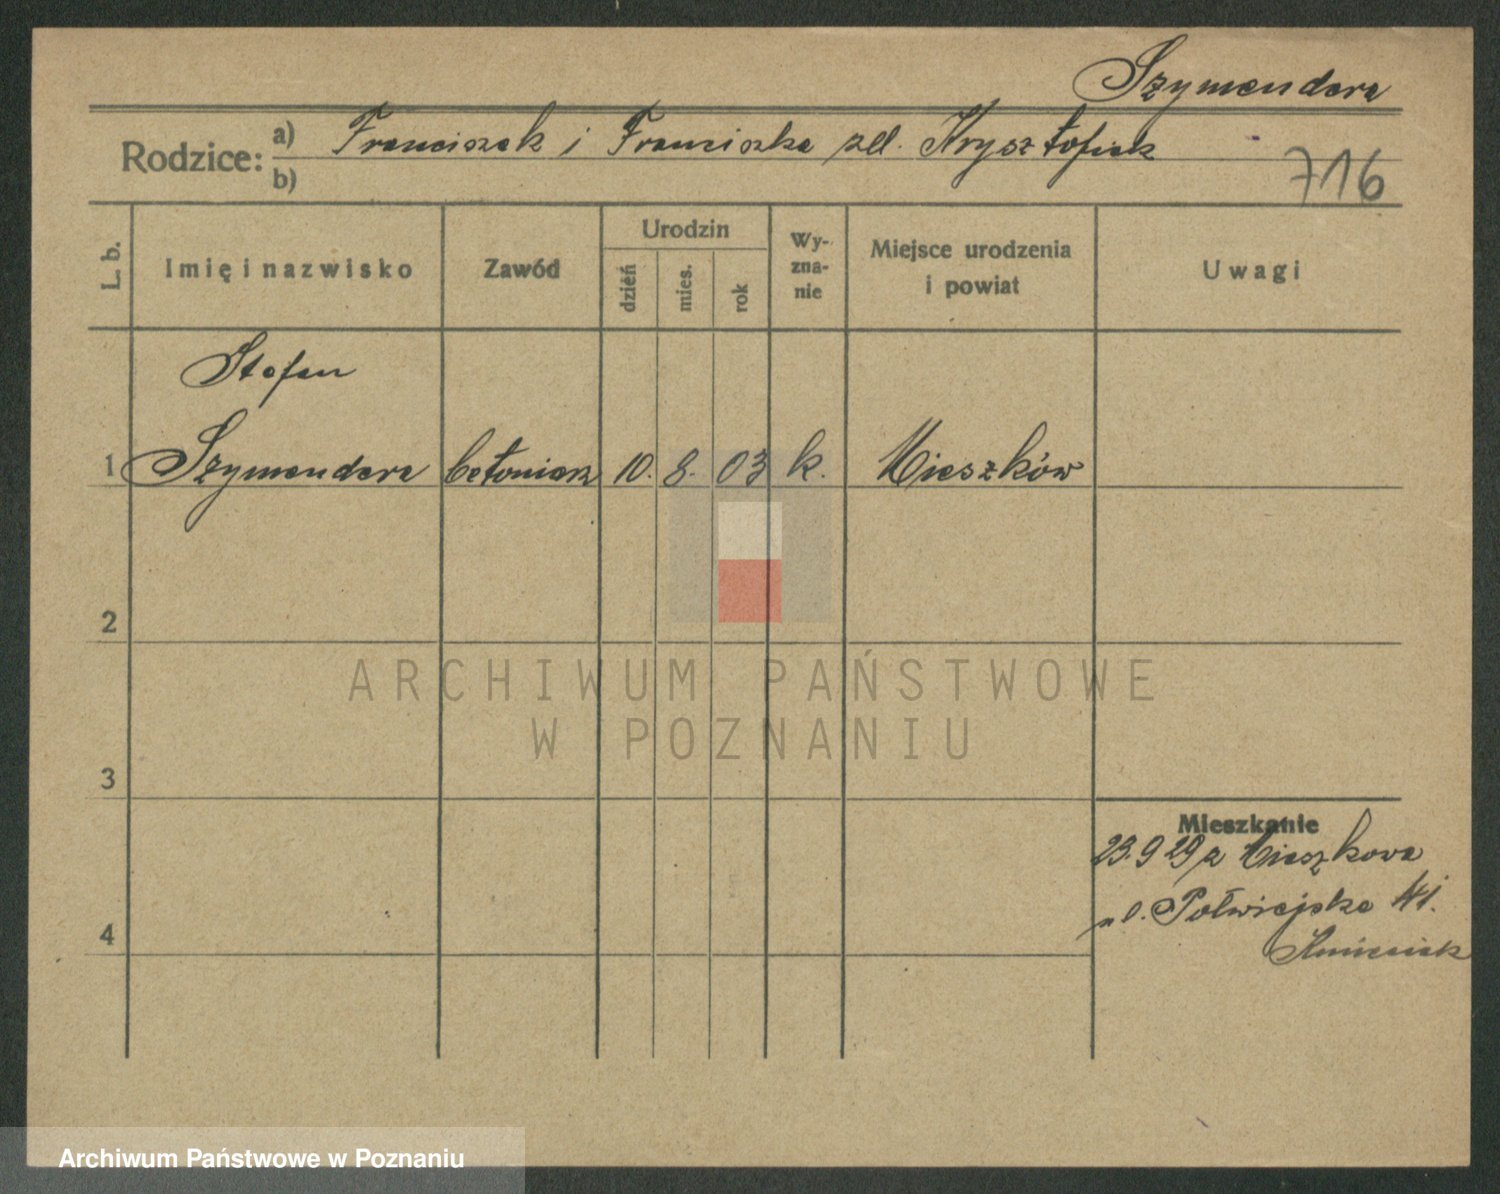 Szymendera
Rodzice: a) Franciszek i Franciszka zd. Krysztofiak
b)
716
L. b. Imię i nazwisko Zawód Urodzin dzień mies. rok Wyzna-nie Miejsce urodzenia i powiat Uwagi
Stefan
1 Szymendera betoniarz 10. 8. 03 k. Mieszków
2
ARCHIWUM PAŃSTWOWE
W POZNANIU
3
Mieszkanie
23.9 29 z Mieszkowa
ul. Półwiejska
4
Archiwum Państwowe w Poznaniu